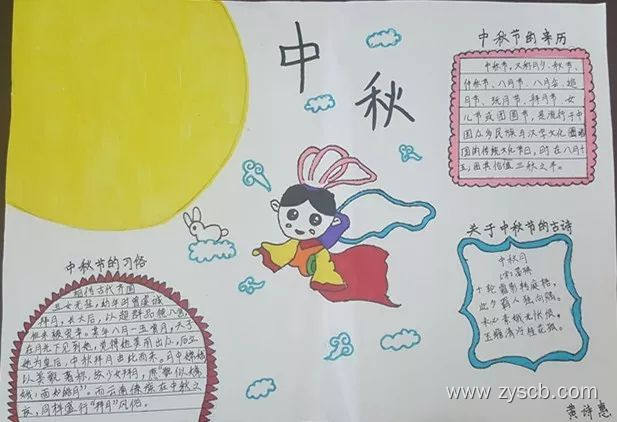 中
秋
中秋节的来历
中秋节,又称月夕、秋节、
仲秋节、八月节、八月会、追
月节、玩月节、拜月节、女
儿节或团圆节,是流行于中
国众多民族与汉字文化圈诸
国的传统文化节日,时在八月十
五;因其恰值三秋之半。
关于中秋节的古诗
中秋月
十轮霜影转庭梧,
此夕羁人独向隅。
未必素娥无怅恨,
玉蟾清冷桂花孤。
中秋节的习俗
相传古代齐国
丑女无盐,幼年时曾虔诚
拜月,长大后,以超群品德入宫,
但未被宠幸。某年八月十五赏月,天子
在月光下见到她,觉得她美丽出众,后立
她为皇后,中秋拜月由此而来。月中嫦娥,
以美貌著称,故少女拜月,愿"貌似嫦
娥,面如皓月"。而云南傣族在中秋之
夜,同样盛行"拜月"风俗。
www.zyscb.com
黄诗惠